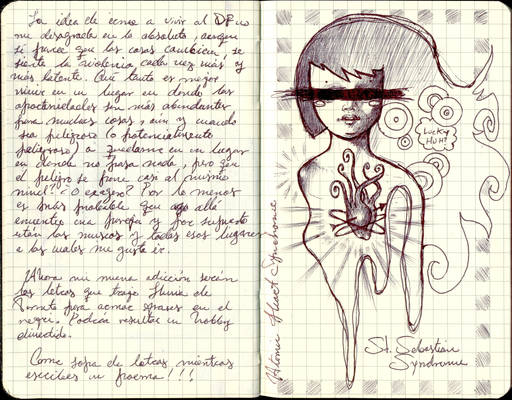 La idea de irnos a vivir al DF no
me desagrada en lo absoluto, aunque
si parece que las cosas cambien, se
siente la violencia cada vez más y
más latente. Qué tanto es mejor
vivir en un lugar en donde las
oportunidades son más abundantes
para muchas cosas, aún y cuando
sea peligroso (o potencialmente
peligroso) o quedarme en un lugar
en donde no pasa nada, pero que
el peligro se pone casi al mismo
nivel? ¿O exagero? Por lo menos
es más probable que allá
encuentre una pareja y por supuesto
están los museos y todos esos lugares
a los cuales me gusta ir.
Ahora mi nueva adicción serán
las letras que trajo de
para armar
Podría resultar un hobby
divertido.
Come sopa de letras mientras
escribes un poema!!!
Lucky
HUH?
Atomic Heart Syndrome
St. Sebastian
Syndrome